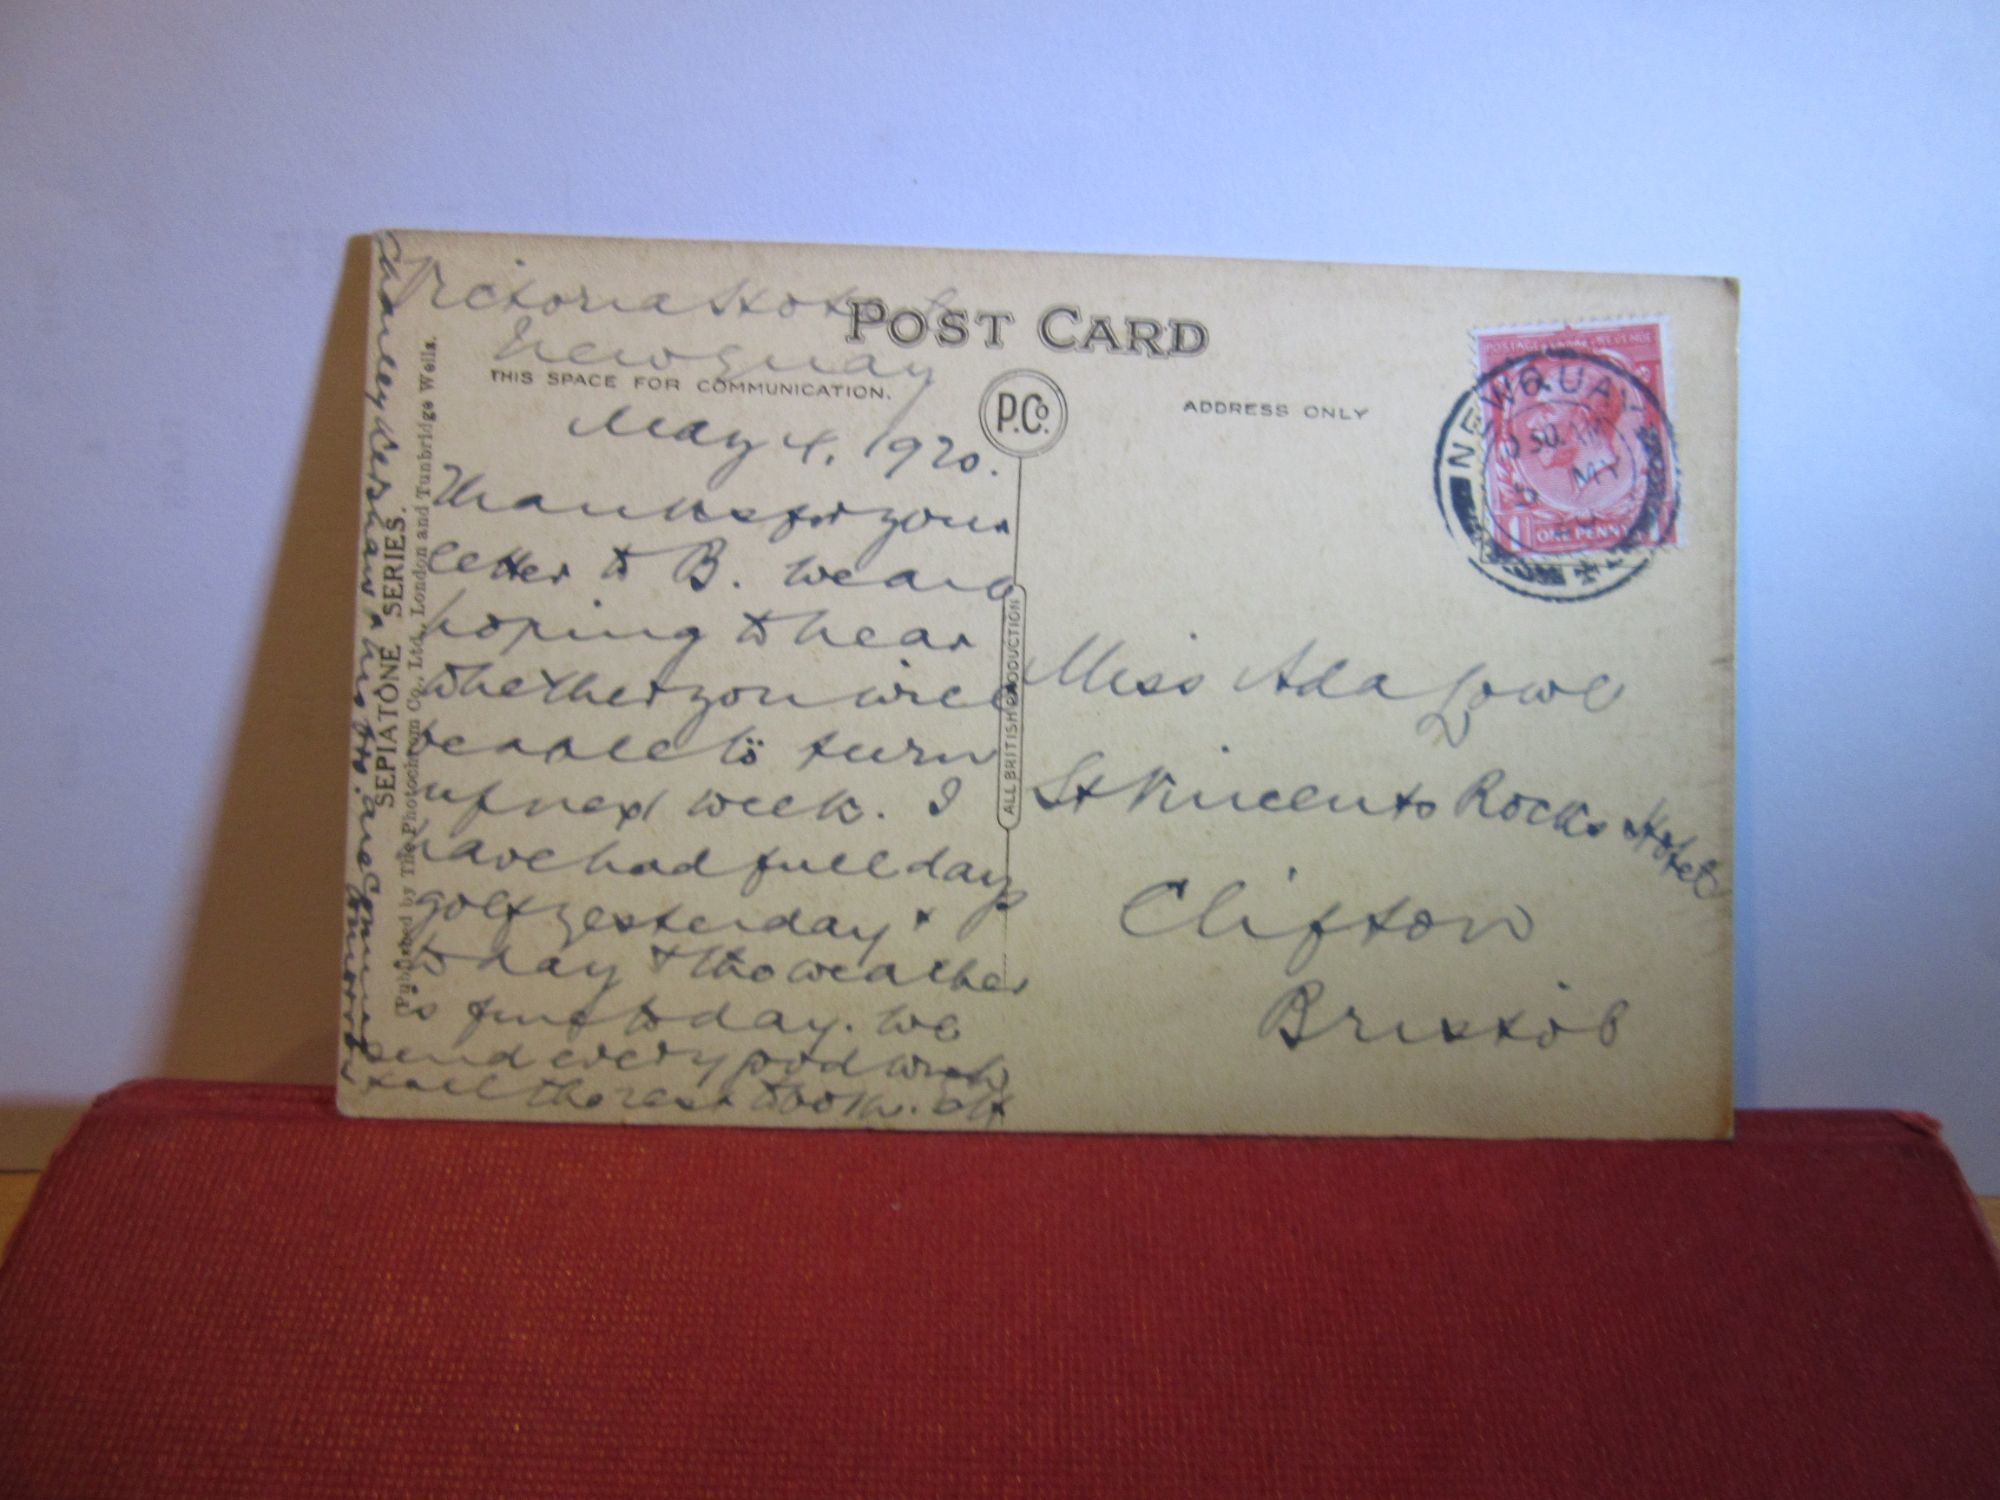 POST CARD
THIS SPACE FOR COMMUNICATION.
ADDRESS ONLY
P.Co.
ALL BRITISH PRODUCTION
SEPIATONE SERIES.
Published by The Photochrom Co., Ltd., London and Tunbridge Wells.
Victoria Hotel
Newquay
May 4. 1920.
Thanks for your
letter to B. we are
hoping to hear
whether you will
be able to turn
up next week. I
have had full days
golf yesterday +
today + the weather
is fine today. we
send every good wish
+ all the rest to
Charley & his
are coming
tomorrow
Miss Ada Lowe
St Vincents Rocks Hotel
Clifton
Bristol
NEWQUAY
30 AM
5 MY
POSTAGE REVENUE
ONE PENNY